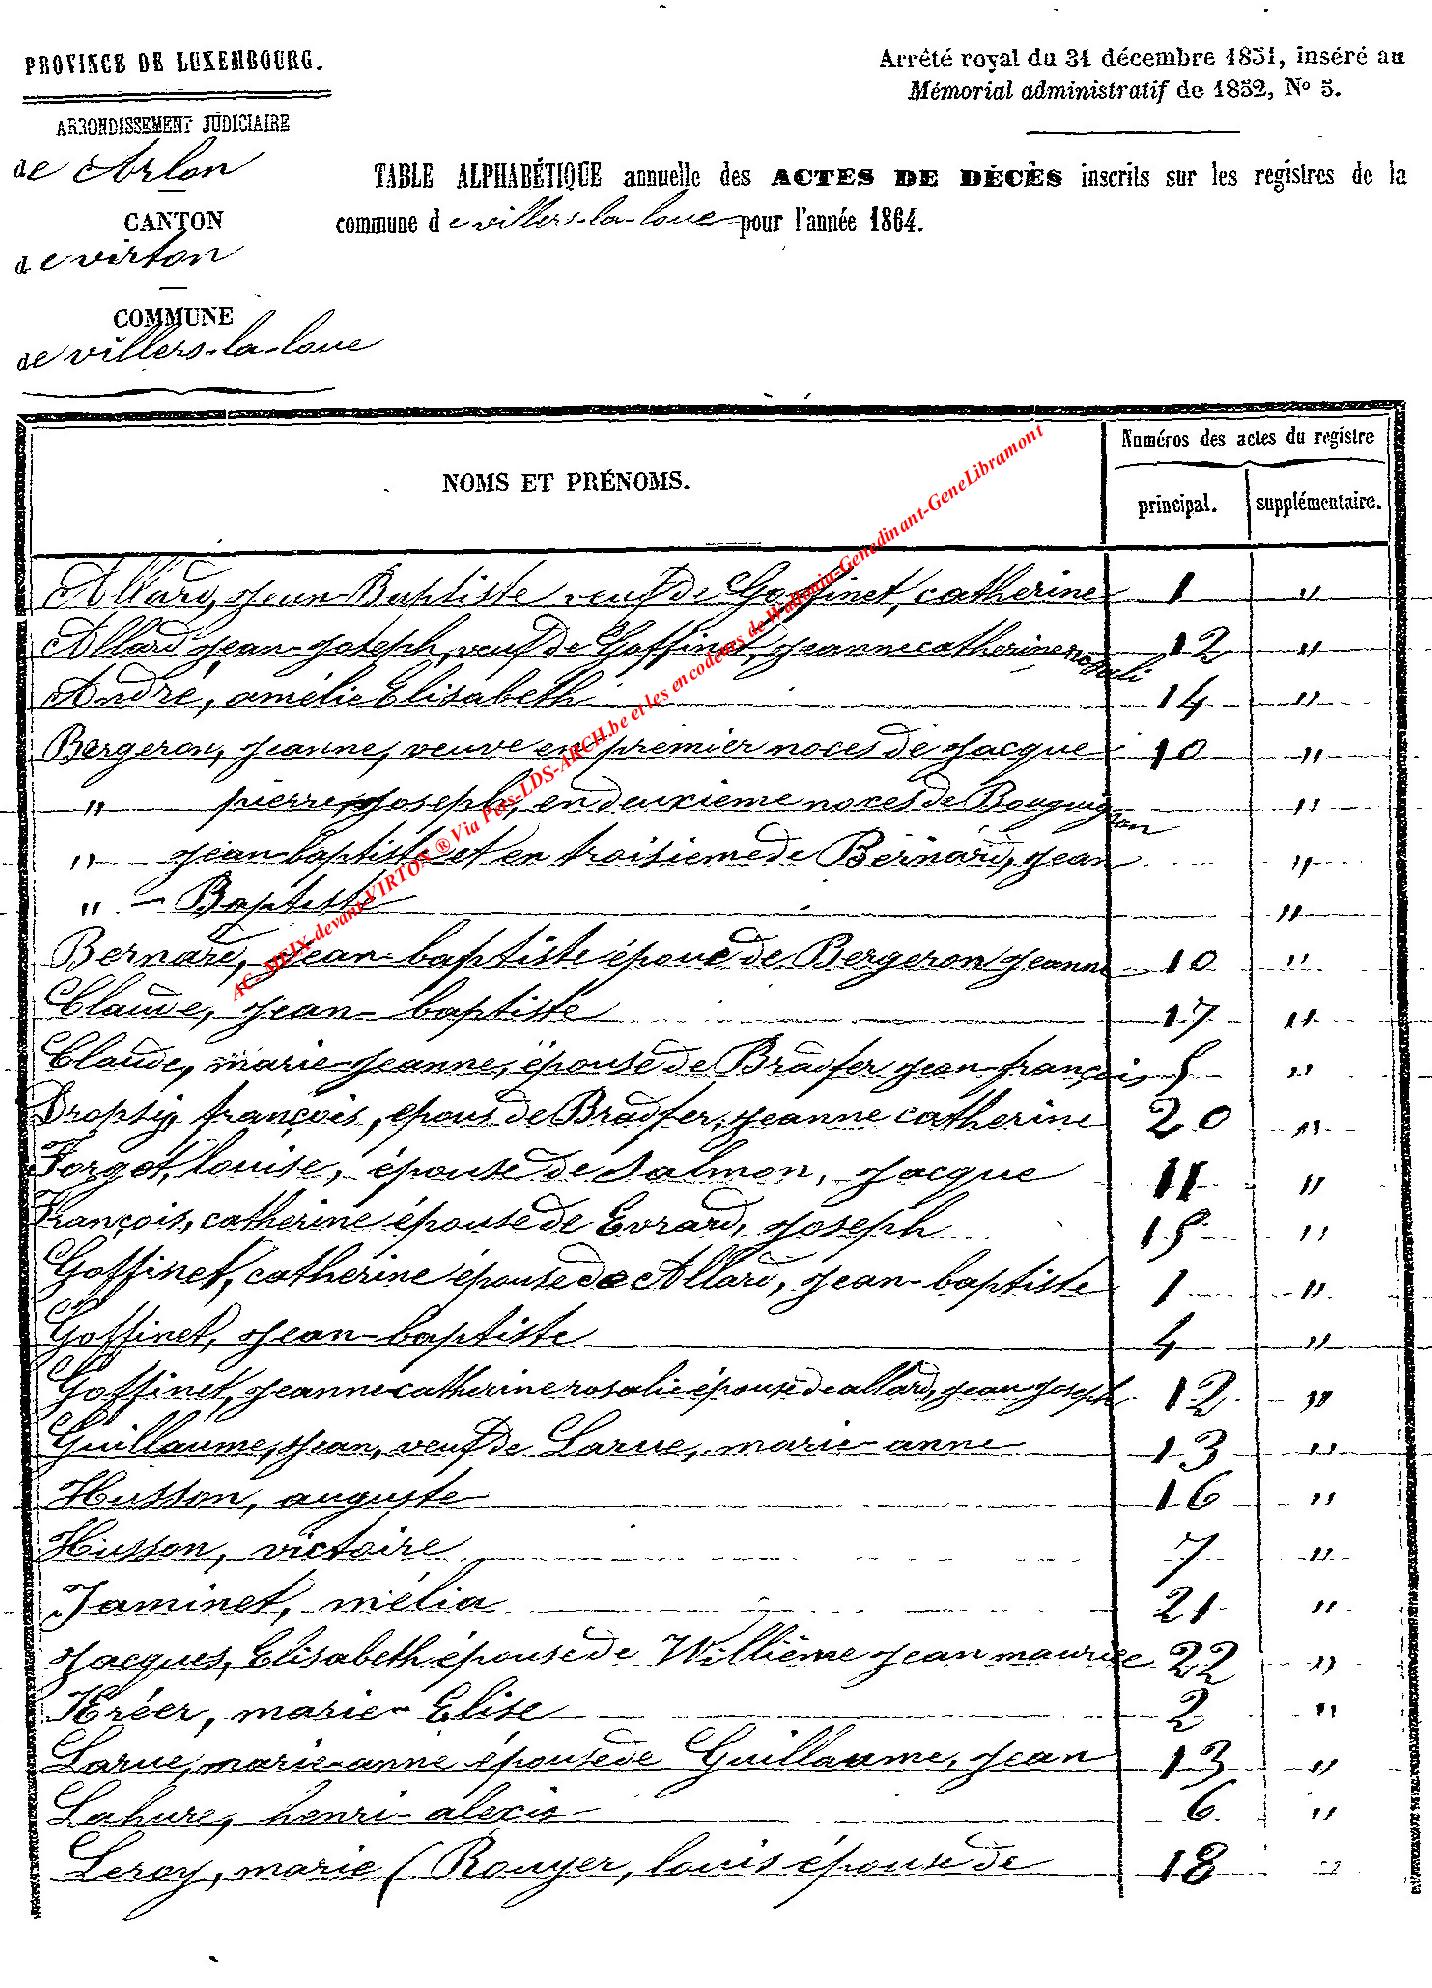 PROVINCE DE LUXEMBOURG.
Arrêté royal du 31 décembre 1851, inséré au
Mémorial administratif de 1852, No 5.
ARRONDISSEMENT JUDICIAIRE
de Arlon
CANTON
de virton
COMMUNE
de villers-la-loue
TABLE ALPHABÉTIQUE annuelle des ACTES DE DÉCÈS inscrits sur les registres de la
commune de villers-la-loue pour l'année 1864.
NOMS ET PRÉNOMS.
Numéros des actes du registre
principal. supplémentaire.
Allard, jean-Baptiste veuf de Goffinet, catherine 1 "
Allard jean-joseph, veuf de Goffinet, jeanne catherine rosali 12 "
André, amélie Elisabeth 14 "
Bergeron, jeanne, veuve en premier noces de jacque 10 "
" pierre joseph, en deuxieme noces de Bouguignon "
" jean-baptiste et en troisieme de Bernard, jean "
" - Baptiste "
Bernard, jean-baptiste époue de Bergeron jeanne 10 "
Claude, jean-baptiste 17 "
Claude, marie-jeanne, épouse de Bradfer jean-françois 5 "
Dropsy, françois, epous de Bradfer, jeanne catherine 20 "
Forget, louise, épouse de Salmon, jacque 11 "
François, catherine épouse de Evrard, joseph 15 "
Goffinet, catherine épouse de Allard, jean-baptiste 1 "
Goffinet, jean-baptiste 4 "
Goffinet, jeanne catherine rosalie épouse de allard, jean joseph 12 "
Guillaume, jean, veuf de Larue, marie-anne 13 "
Husson, auguste 16 "
Husson, victoire 7 "
Jaminet, mélia 21 "
Jacques, Elisabeth épouse de Willième jean maurice 22 "
Kréer, marie-Elise 2 "
Larue, marie-anne épouse de Guillaume, jean 13 "
Lahure, henri-alexis 6 "
Leroy, marie (Rouyer, louis épouse de 18 "
AC-MEIX-devant-VIRTON ® Via Pers-LDS-ARCH.be et les encodeurs de Wallonia-Genedinant-GeneLibramont